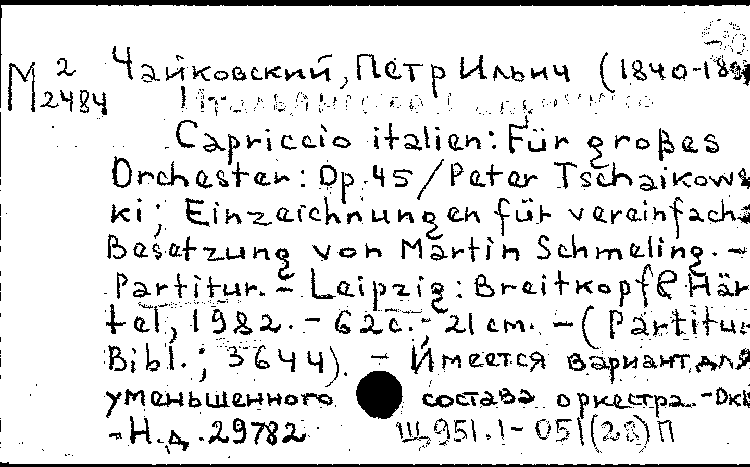 М 2 Чайковский, Петр Ильич (1840-18
2484 Итальянское каприччио
Capriccio italien: Für großes
Orchester: Op. 45/Peter Tschaikows
ki; Einzeichnungen für vereinfach
Besetzung von Martin Schmeling. -
Partitur. - Leipzig: Breitkopf & Här
tel, 1982. - 62 с.; 21 cm. - (Partitur
Bibl.; 3644). - Имеется вариант для
уменьшенного состава оркестра. -
- Н.д. 29782 Щ951.1-051(28)П